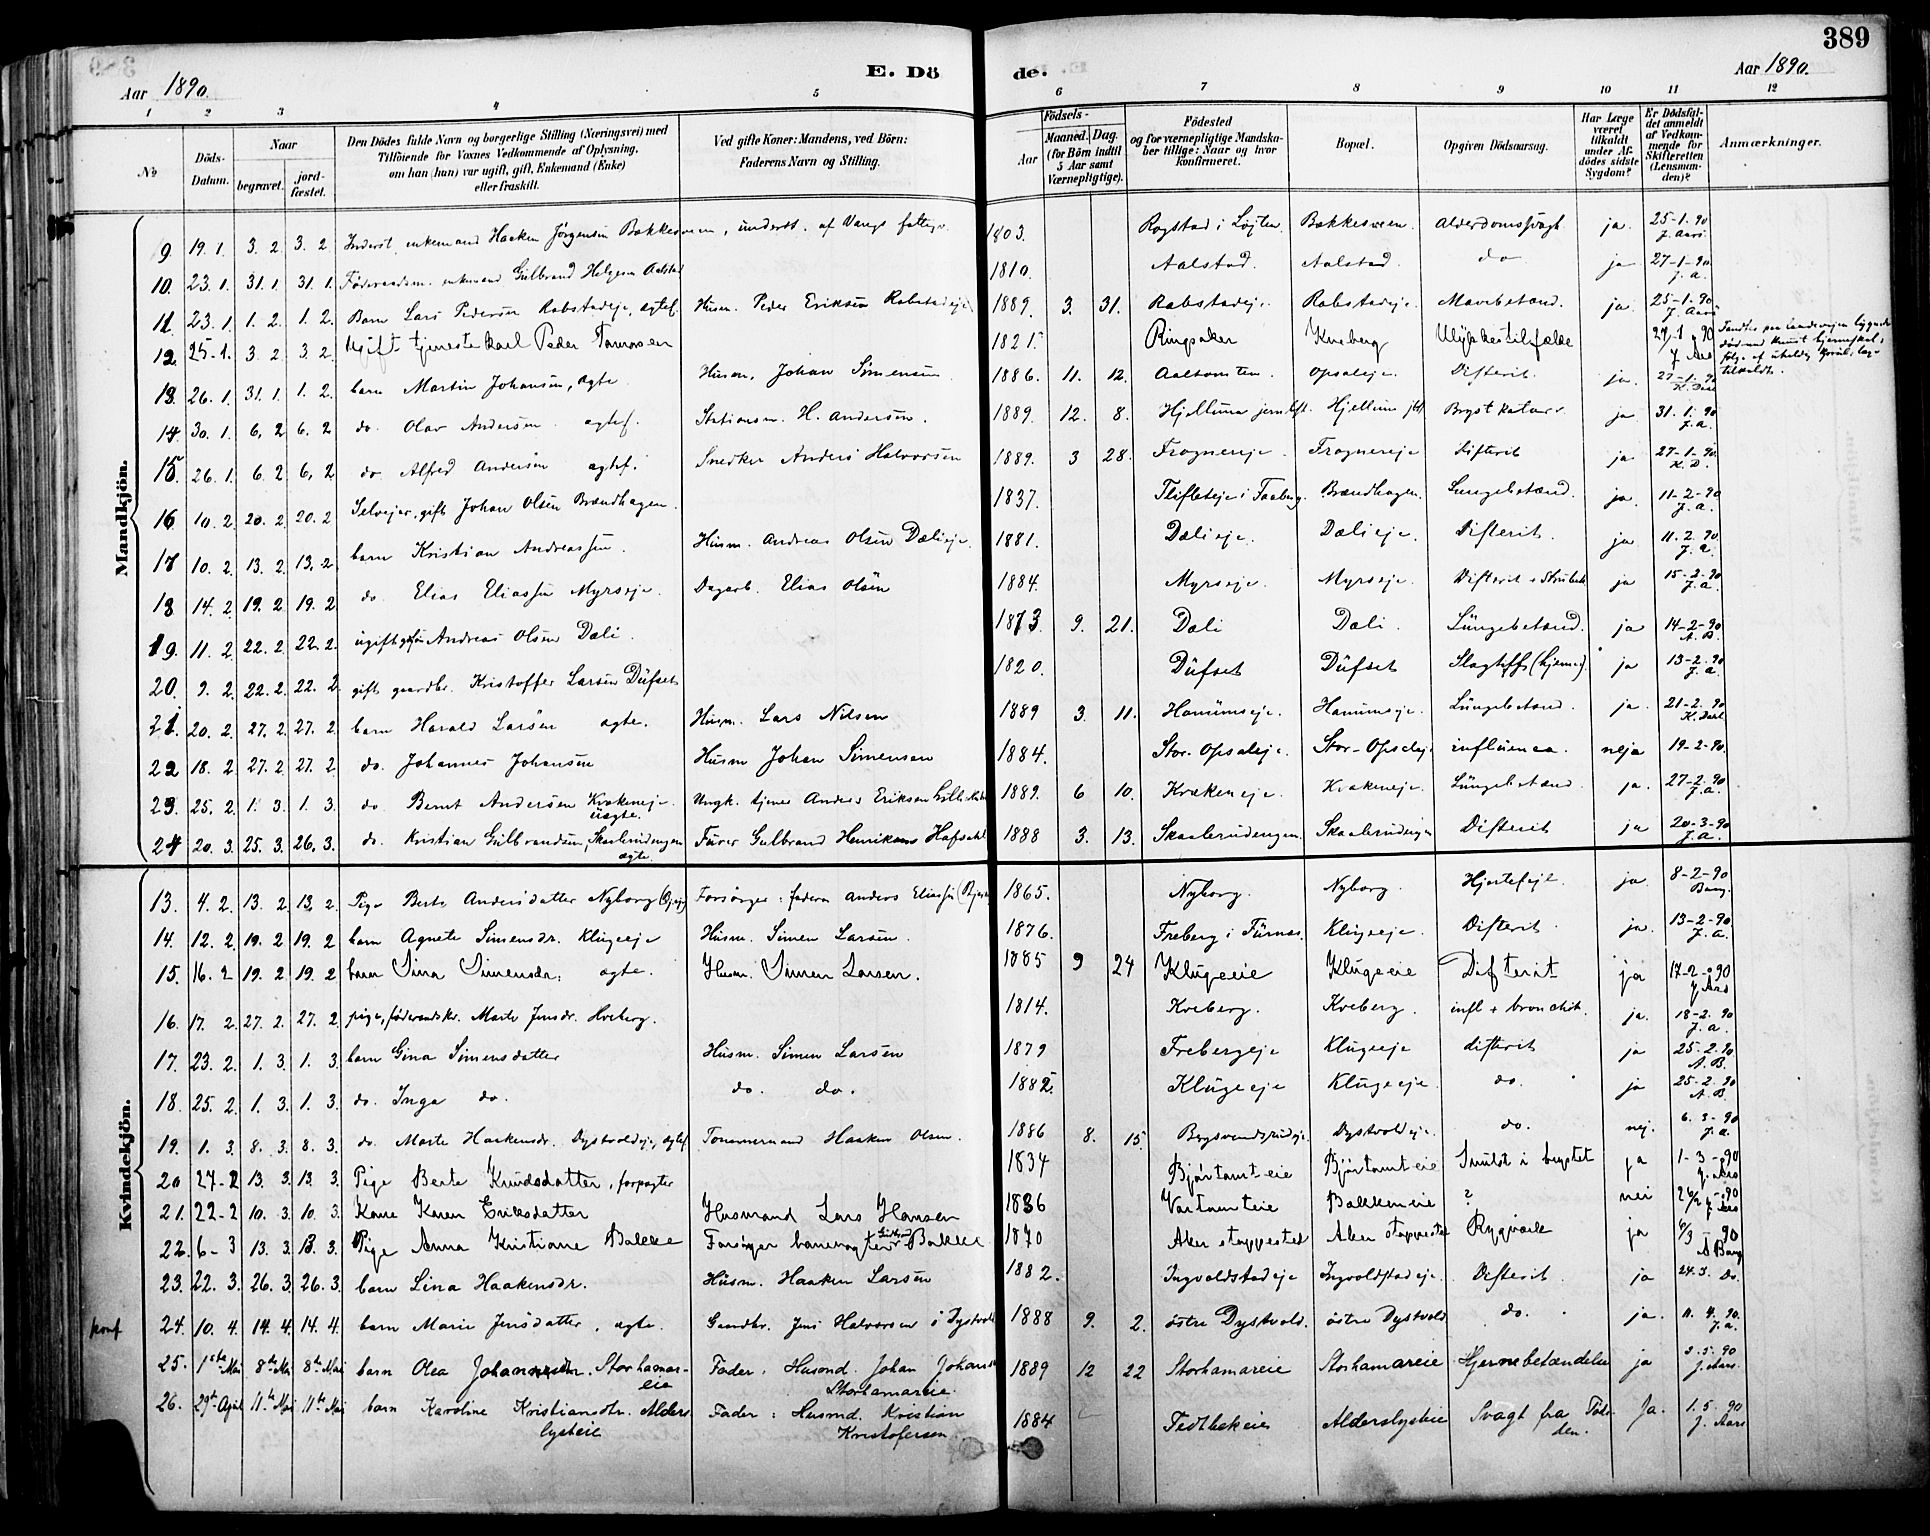 389
Aar 1890.
E. Döde.
Aar 1890.
1 2 3 4 5 6 7 8 9 10 11 12
No
Döds-Datum.
Naar
begravet.
jordfæstet.
Den Dödes fulde Navn og borgerlige Stilling (Næringsvei) med Tilföiende for Voxnes Vedkommende af Oplysning, om han (hun) var ugift, gift, Enkemand (Enke) eller fraskilt.
Ved gifte Koner: Mandens, ved Börn: Faderens Navn og Stilling.
Födsels-
Aar
Maaned. Dag.
(for Börn indtil 5 Aar samt Værnepligtige).
Födested og for værnepligtige Mandskaber tillige: Naar og hvor konfirmeret.
Bopæl.
Opgiven Dödsaarsag.
Har Læge været tilkaldt under Afdödes sidste Sygdom?
Er Dödsfaldet anmeldt af Vedkommende for Skifteretten (Lensmanden)?
Anmærkninger.
Mandkjön.
9. 19. 1. 3. 2. 3. 2 Inderst, enkemand Haaken Jörgensen Bakkesveen, underst. af Vangs fattigv. 1803. Rogstad i Löjten Bakkesveen. Alderdomssvagh. ja. 25-1-90 J. Aars.
10. 23. 1. 31. 1. 31. 1. Föderaadsm. enkemand Gulbrand Helgesen Aalstad 1810. Aalstad. Aalstad. do ja 27-1-90. J. A.
11. 23. 1. 1. 2. 1. 2. Barn Lars Pedersen Rabstadeje, ægtef. Husm. Peder Eriksen Rabstadeje 1889. 3. 31. Rabstadeje. Rabstadeje. Mavebetænd. ja. 25-1-90. J. Aars
12. 25-1. 3 2 3 2. Ugift tjenestekarl Peder 1821. Ringsaker Kneberg Ulykkestilfælde 29/1 90 J Aars Fandtes paa landeveien liggende död med knust hjerneskal,
13. 26. 1. 31. 1. 1. 2. barn Martin Johansen, ægte. Husm. Johan Simensen 1886. 11. 12. Opsaleje. Difterit. ja. 27-1-90
14. 30. 1. 6. 2 6. 2 do. Olav Andersen ægtef. Stationsm. H. Andersen. 1889. 12. 8. Hjellum jernbst. Hjellum jbst. Brystkatarr ja 31. 1. 90 J. A.
15. 26. 1. 6. 2 6. 2 do Alfred Andersen ægtef. Snedker Anders Halvorsen 1889. 3 28. Frognereje. Frognereje Difterit ja. 27-1-90. K. D.
16 10. 2. 20. 2 20. 2 Selvejer, gift Johan Olsen Brændhagen. 1837. Brændhagen. Lungebetænd. ja. 11-2-90 J. A.
17 10. 2. 13. 2. 13. 2 barn Kristian Andreassen. Husm. Andreas Olsen Dælieje. 1881. Dælieje. Dælieje. Difterit. ja. 11. 2. 90 J. A.
18 14. 2. 19. 2 19. 2 do. Elias Eliassen Myrseje. Dagarb. Elias Olsen 1884. Myrseje. Myrseje. Difterit + Strube ja 15-2-90 J. A.
19. 11. 2. 22. 2 22. 2. ugift Andreas Olsen Dæli. 1873. 9. 21. Dæli Dæli. Lungebetænd. ja 14-2-90 A. B.
20. 9. 2. 22. 2. 22. 2. gift gaardbr. Kristoffer Larsen Dufset 1820. Dufset Dufset Slagtilf. (hjerne). ja 13-2-90 J. A.
21. 20. 2. 27. 2. 27. 2 barn Harald Larsen ægte. Husm. Lars Nilsen 1889 3. 11. Hanumseje. Hanumseje. Lungebetænd. ja. 21-2-90
22 18. 2 27. 2 27. 2 do. Johannes Johansen Husm Johan Simensen 1884. Stor-Opsaleje. Stor-Opsaleje influensa. neja 19-2-90.
23. 25. 2. 1. 3. 1. 3. do Bernt Andersen Krækeneje. uægte. Ungk. tjener Anders Eriksen 1889. 6 10. Krækeneje. Krækeneje. Lungebetænd ja. 27-2. 90 J. A.
24 20. 3. 25. 3. 26. 3. do. Kristian Gulbrandsen, Skaalerudengen ægte. Furer Gulbrand Henriksen 1888 3. 13. Skaalerudengen. Skaalerudengen Difterit ja 20-3-90 J. A.
Kvindekjön.
13. 4. 2. 13. 2. 13. 2. Pige Berte Andersdatter Nyborg Forsörger: faderen Anders Eliassen 1865. Nyborg. Nyborg. Hjertefejl. ja. 8-2-90 Bang.
14. 12. 2. 19. 2 19. 2 barn Agnete Simensdr. Klugeeje Husm. Simen Larsen. 1876. Freberg i Furnes. Klugeeje. Difterit. ja. 13-2-90 J. A.
15. 16. 2 19. 2 19. 2 barn Sina Simensdr. ægte. Husm. Simen Larsen. 1885 9 24 Klugeeie Klugeeie Difterit ja 17-2-90 J. Aars
16. 17. 2. 27. 2. 27. 2 pige, föderaadskr. Marte Jensdr. Kveberg. 1814. Kveberg. Kveberg. infl + bronchit. ja. 18-2. 90 J. A.
17. 23. 2. 1. 3. 1. 3. barn Gina Simensdatter Husm. Simen Larsen 1879 Frebergeje Klugeeje difterit ja 25-2-90 A. B.
18. 25. 2. 1. 3. 1. 3. do. Inga do. do. do. 1882. Klugeeje Klugeeje. do. ja 25-2. 90 A. B.
19. 1. 3. 8. 3. 8. 3. do. Marte Haakensdr. Dystvoldeje, ægtef Tömmermand Haaken Olsen. 1886 8. 15. Dystvoldeje. do. nej. 6. 3-90 J. A.
20 27-2 13. 3. 13. 3. Pige Berte Knudsdatter, forpagter 1834 Bjørtomteie Bjørtomteie i brystet ja 1-3-90 J. Aars
21. 22-2 10. 3. 10. 3. Kone Karen Eriksdatter Husmand Lars Hansen 1836 Bakkeneie ? nei 26/2 90 J Aars
22. 6-3 13. 3. 13. 3. Pige Anna Kristiane Bakke Forsörger banevogter Bakke 1870 Aker stoppested Aker stoppested Rygværk ja 6/3 90 A Bang
23. 22. 3. 26. 3 26. 3. barn Lina Haakensdr. Husm. Haaken Larsen 1882. Ingvoldstadeje Ingvoldstadeje. Difterit. ja 24. 3. Do.
24. 10. 4. 14. 4. 14. 4. barn Marie Jensdatter, ægte. Gaardbr. Jens Halvorsen ö. Dystvold 1888 9. 2. östre Dystvold. östre Dystvold do. ja. 11. 4. 90. J. A.
25. 1ste Mai 8de Mai 8de Mai barn Olea Johansdr. Storhamareie Fader: Husmd. Johan Johans Storhamareie. 1889 12 22 Storhamareie Storhamareie Hjernebetændelse ja 2. 5. 90 J. Aars.
26. 29de April 11te Mai 11te Mai barn Karoline Kristiansdtr. Alderslysteie Fader: Husmd. Kristian Kristofersen 1884 Alderslysteie Svagt fra Fødselen. Ja. 1. 5. 90 J. Aars